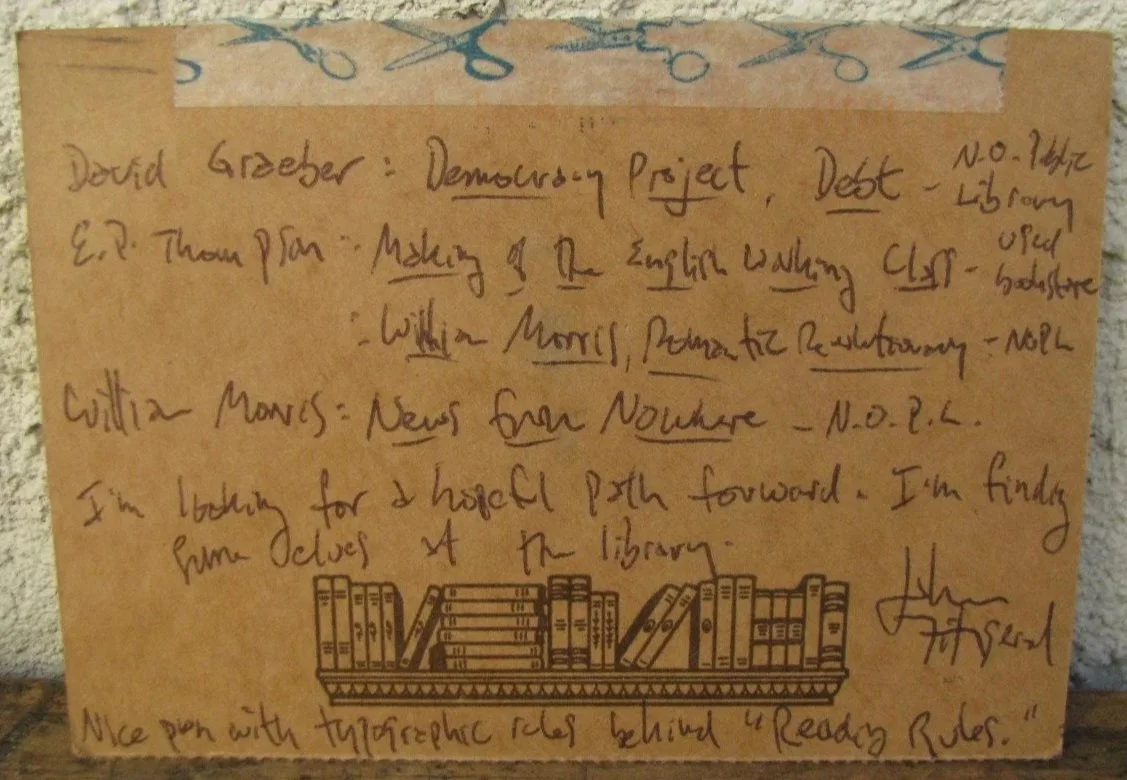 David Graeber: Democracy Project, Debt - N.O. Public Library
E.P. Thompson: Making of the English Working Class - used bookstore
: William Morris, Romantic Revolutionary - NOPL
William Morris: News from Nowhere - N.O.P.L.
I'm looking for a hopeful path forward. I'm finding
some clues at the library.
John
Fitzgerald
Nice pun with typographic rules behind "Reading Rules."